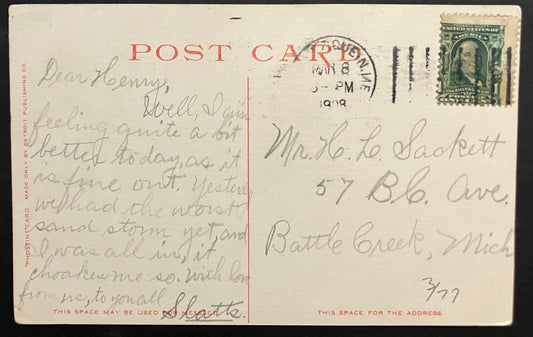 POST CARD
Dear Henry,
Well, I am
feeling quite a bit
better today, as it
is fine out. Yesterday
we had the worst
sand storm yet, and
I was all in, it
choakes me so. With love
from us, to you all
Shatts.
"PHOSTINT CARD" MADE ONLY BY DETROIT PUBLISHING CO.
THIS SPACE MAY BE USED FOR MESSAGE
MAR 8
PM
UNITED STATES OF
AMERICA
Mr. H. L. Sackett
57 B.C. Ave.
Battle Creek, Mich
3/77
THIS SPACE FOR THE ADDRESS.